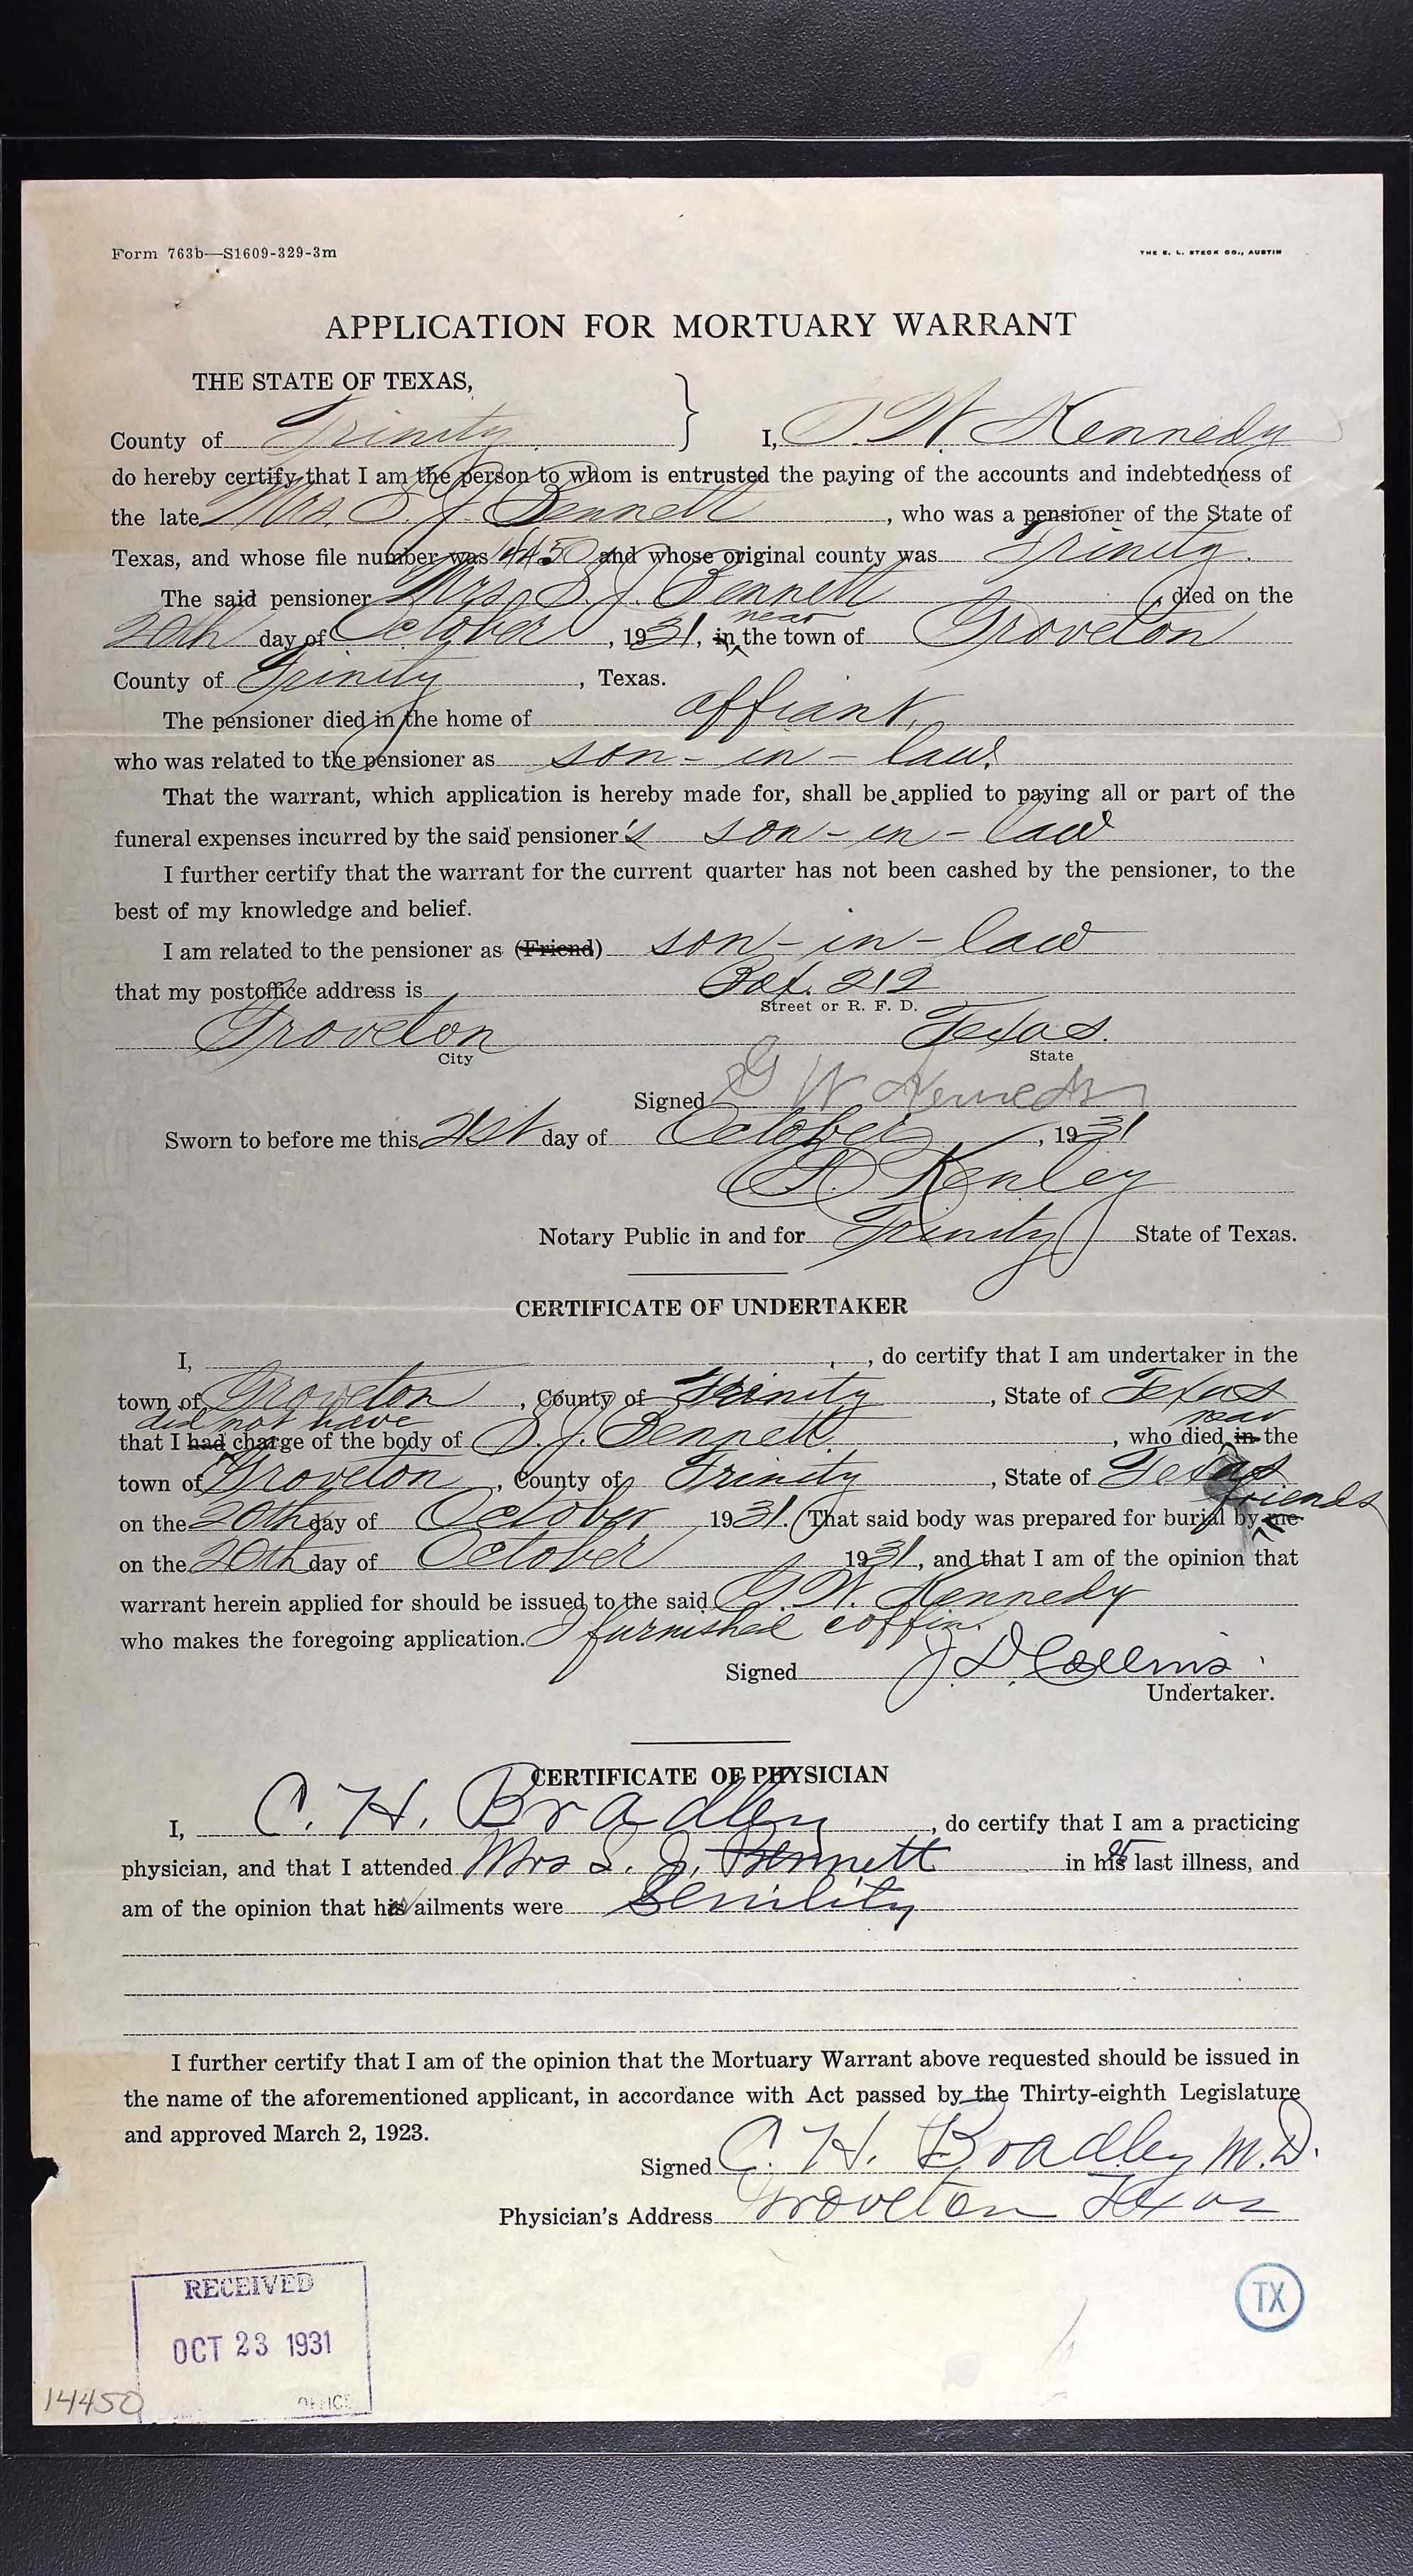 Form 763b—S1609-329-3m
THE E. L. STECK CO., AUSTIN
APPLICATION FOR MORTUARY WARRANT
THE STATE OF TEXAS,
County of Trinity } I, G. W. Kennedy
do hereby certify that I am the person to whom is entrusted the paying of the accounts and indebtedness of
the late Mrs. S. J. Bennett, who was a pensioner of the State of
Texas, and whose file number was 14450 and whose original county was Trinity.
The said pensioner Mrs. S. J. Bennett, died on the
20th day of October, 1931, in near the town of Groveton
County of Trinity, Texas.
The pensioner died in the home of affiant,
who was related to the pensioner as son-in-law.
That the warrant, which application is hereby made for, shall be applied to paying all or part of the
funeral expenses incurred by the said pensioner's son-in-law
I further certify that the warrant for the current quarter has not been cashed by the pensioner, to the
best of my knowledge and belief.
I am related to the pensioner as (Friend) son-in-law
that my postoffice address is Box. 212
Street or R. F. D.
Groveton Texas.
City State
Signed G W Kennedy
Sworn to before me this 21st day of October, 1931
Kenley
Notary Public in and for Trinity State of Texas.
CERTIFICATE OF UNDERTAKER
I, , do certify that I am undertaker in the
town of Groveton, County of Trinity, State of Texas
did not have near
that I had charge of the body of S. J. Bennett, who died in the
town of Groveton, County of Trinity, State of Texas
friends
on the 20th day of October 1931. That said body was prepared for burial by me
on the 20th day of October 1931, and that I am of the opinion that
warrant herein applied for should be issued to the said G. W. Kennedy
who makes the foregoing application. I furnished coffin.
Signed J. D. Collins.
Undertaker.
CERTIFICATE OF PHYSICIAN
I, C. H. Bradley, do certify that I am a practicing
physician, and that I attended Mrs S. J. Bennett in his last illness, and
am of the opinion that his ailments were Senility
I further certify that I am of the opinion that the Mortuary Warrant above requested should be issued in
the name of the aforementioned applicant, in accordance with Act passed by the Thirty-eighth Legislature
and approved March 2, 1923.
Signed C. H. Bradley M.D.
Physician's Address Groveton Texas
RECEIVED
OCT 23 1931
OFFICE
14450
TX